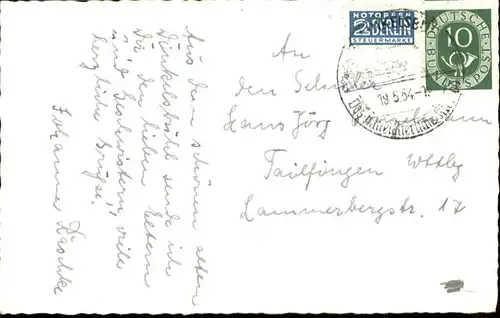 Aus dem schönen alten
Dinkelsbühl sende ich
Dir, den lieben Eltern
und Geschwistern, viele
herzliche Grüße.
Johannes
NOTOPFER
2 BERLIN
STEUERMARKE
DEUTSCHE BUNDESPOST
10
19.5.54
An
den
Hans Jörg
Tailfingen Wttbg
Lammerbergstr. 17